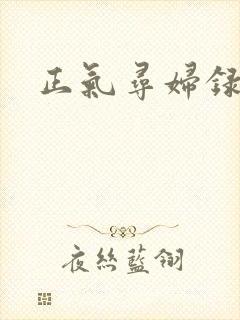 正氣尋婦録
夜絲藍翎